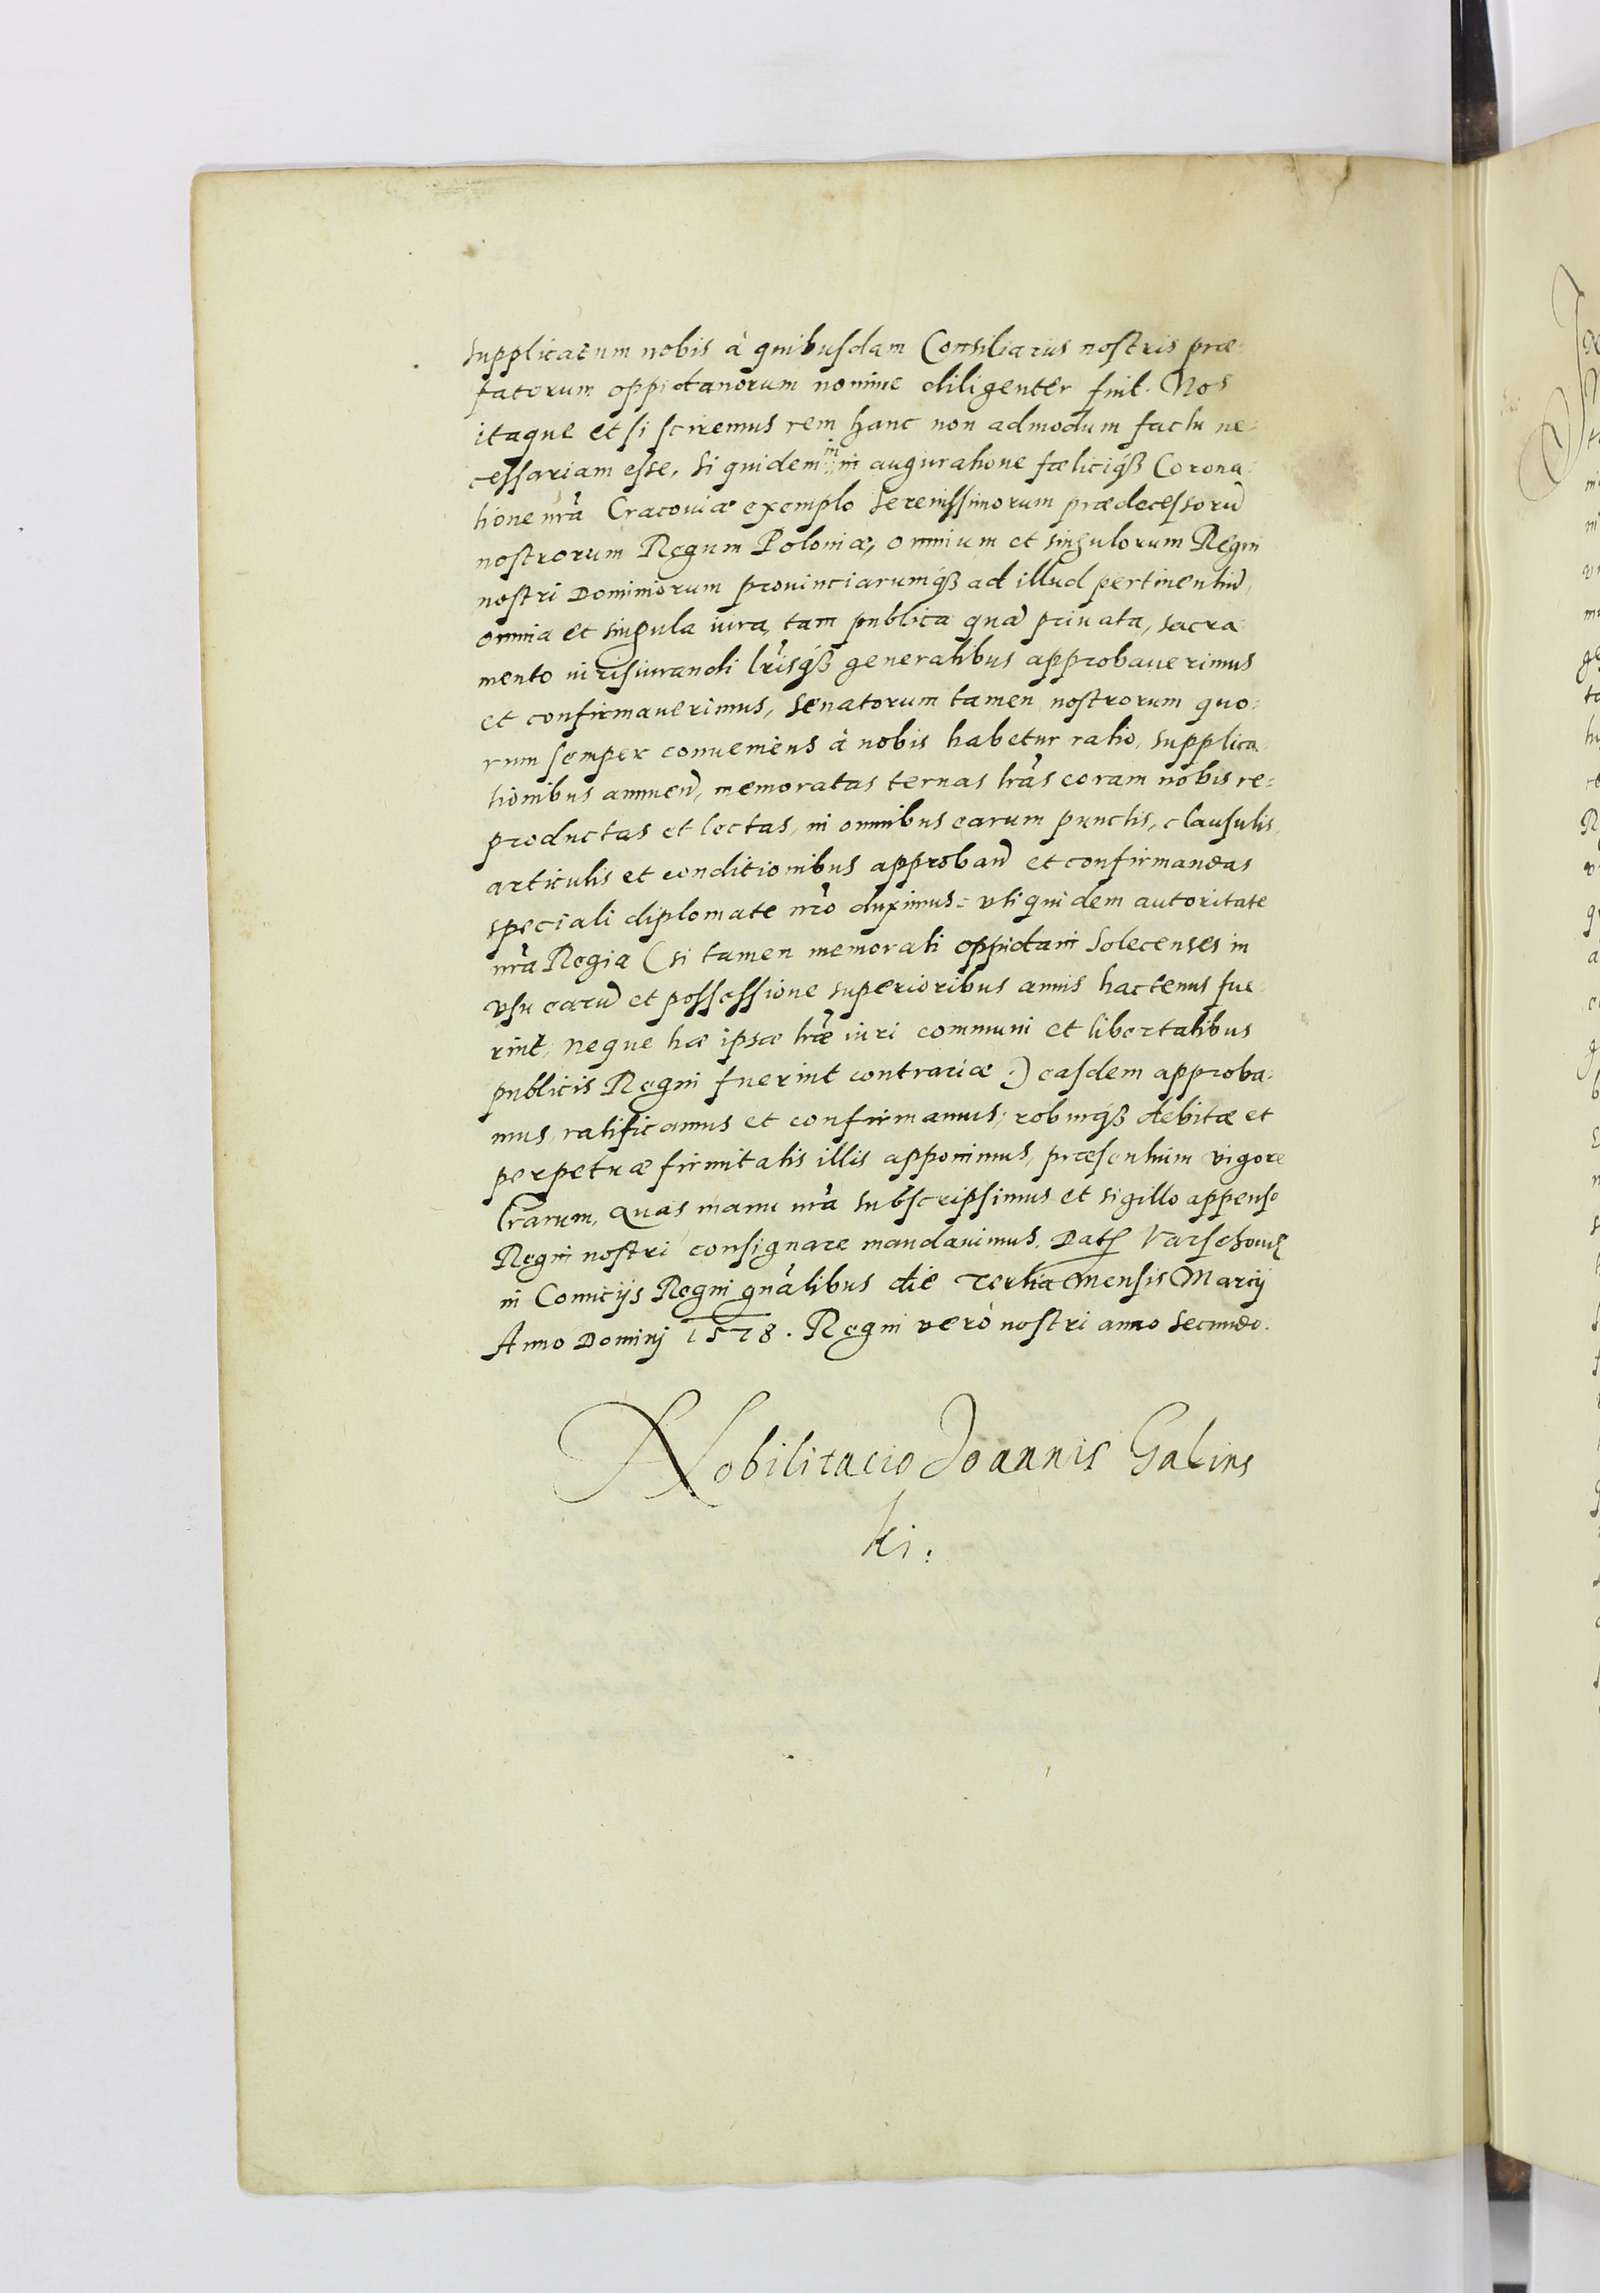 supplicatum nobis à quibusdam Consiliariis nostris præ-
fatorum oppidanorum nomine diligenter fuit. Nos
itaque et si sciremus rem hanc non admodum factu ne-
cessariam esse, si quidem in auguratione fæliciq́ꝫ Corona-
tione nr̃a Cracoviæ exemplo serenissimorum prædecessorũ
nostrorum Regum Poloniæ, omnium et singulorum Regni
nostri Dominiorum provinciarumq́ꝫ ad illud pertinentiũ,
omnia et singula iura, tam publica quã privata, sacra-
mento iurisiurandi lr̃isq́ꝫ generalibus approbaverimus
et confirmaverimus, senatorum tamen nostrorum quo-
rum semper conveniens à nobis habetur ratio, supplica-
tionibus annuen̄, memoratas ternas lr̃as coram nobis re-
productas et lectas, in omnibus earum punctis, clausulis,
articulis et conditionibus approban̄ et confirmandas
speciali diplomate nr̃o duximus, uti quidem autoritate
nr̃a Regia (si tamen memorati oppidani Solecenses in
usu earũ et possessione superioribus annis hactenus fue-
rint, neque hæ ipsæ lr̃æ iuri communi et libertatibus
publicis Regni fuerint contrariæ :) easdem approba-
mus, ratificamus et confirmamus, roburq́ꝫ debitæ et
perpetuæ firmitatis illis apponimus, præsentium vigore
lr̃arum, quas manu nr̃a subscripsimus et sigillo appenso
Regni nostri consignare mandavimus. Datꝭ Varschovię
in Comitijs Regni gnãlibus die Tertia Mensis Marcij
Anno Dominj 1578. Regni verò nostri anno secundo.
Nobilitacio Joannis Galins
ki.